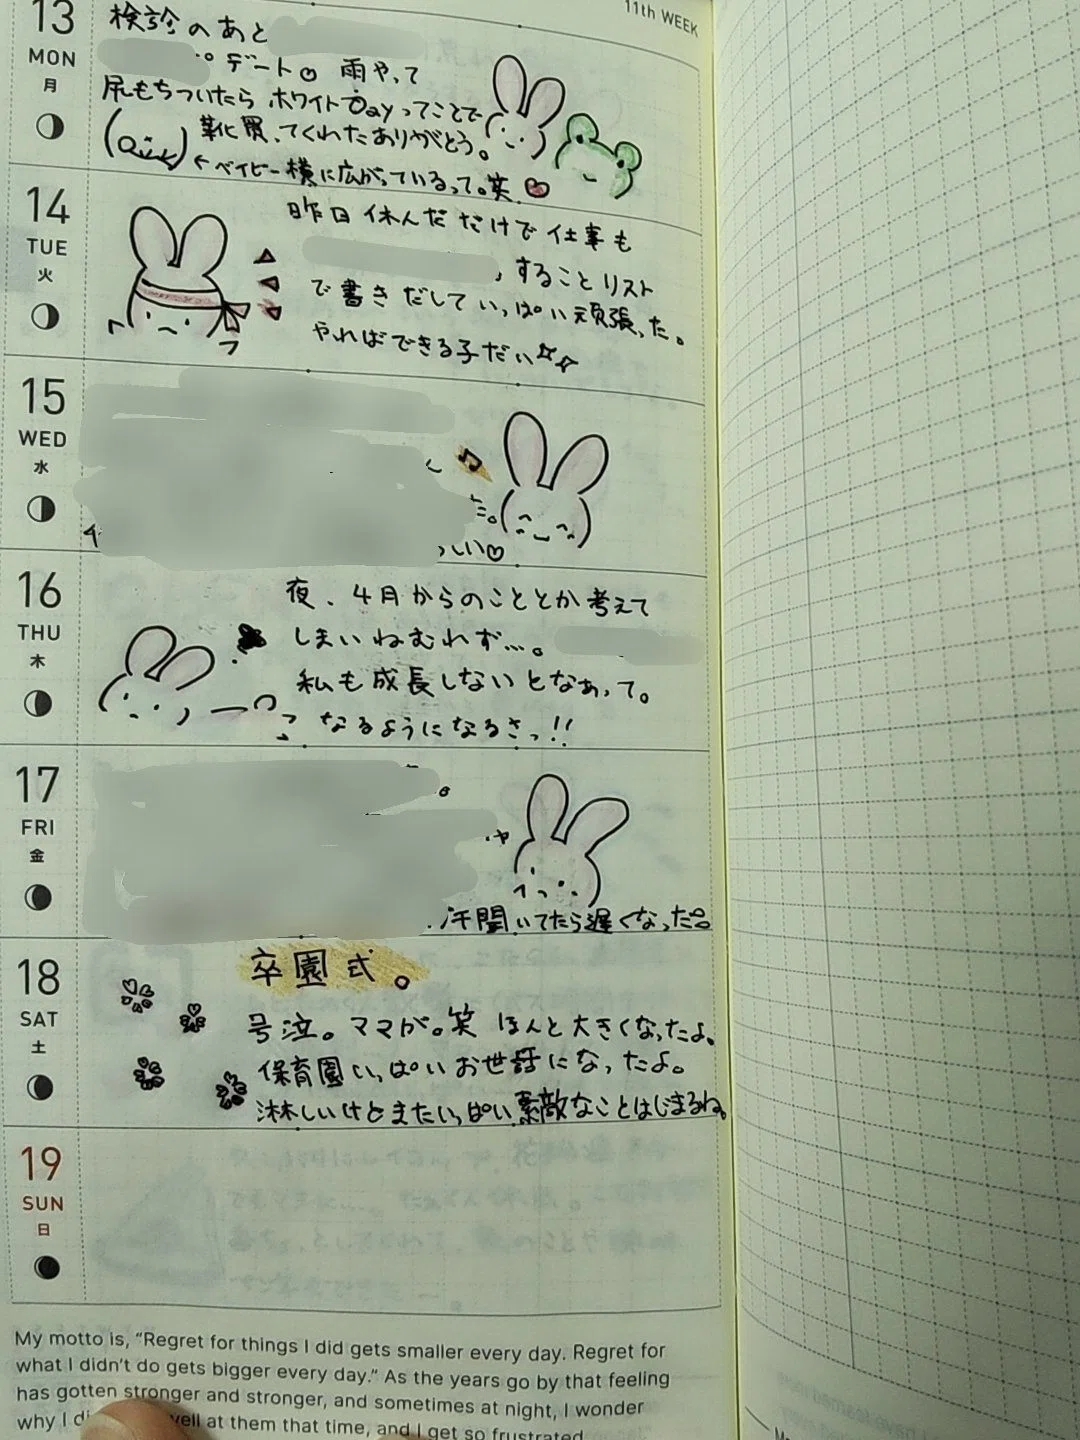 11th WEEK
13
MON
月
検診のあと
デート♡ 雨やって
尻もちついたら ホワイトDayってことで
靴買ってくれたありがとう。
←ベイビー横に広がっているって。笑
14
TUE
火
昨日休んだだけで仕事も
、することリスト
で書きだしていっぱい頑張った。
やればできる子だい☆☆
15
WED
水
♪
しい♡
16
THU
木
夜、4月からのこととか考えて
しまいねむれず…。
私も成長しないとなぁって。
なるようになるさっ!!
17
FRI
金
聞いてたら遅くなった。
18
SAT
土
卒園式。
号泣。ママが。笑 ほんと大きくなったよ。
保育園いっぱいお世話になったよ。
淋しいけどまたいっぱい素敵なことはじまるね。
19
SUN
日
My motto is, “Regret for things I did gets smaller every day. Regret for
what I didn’t do gets bigger every day.” As the years go by that feeling
has gotten stronger and stronger, and sometimes at night, I wonder
why I well at them that time, and I get so frustrated